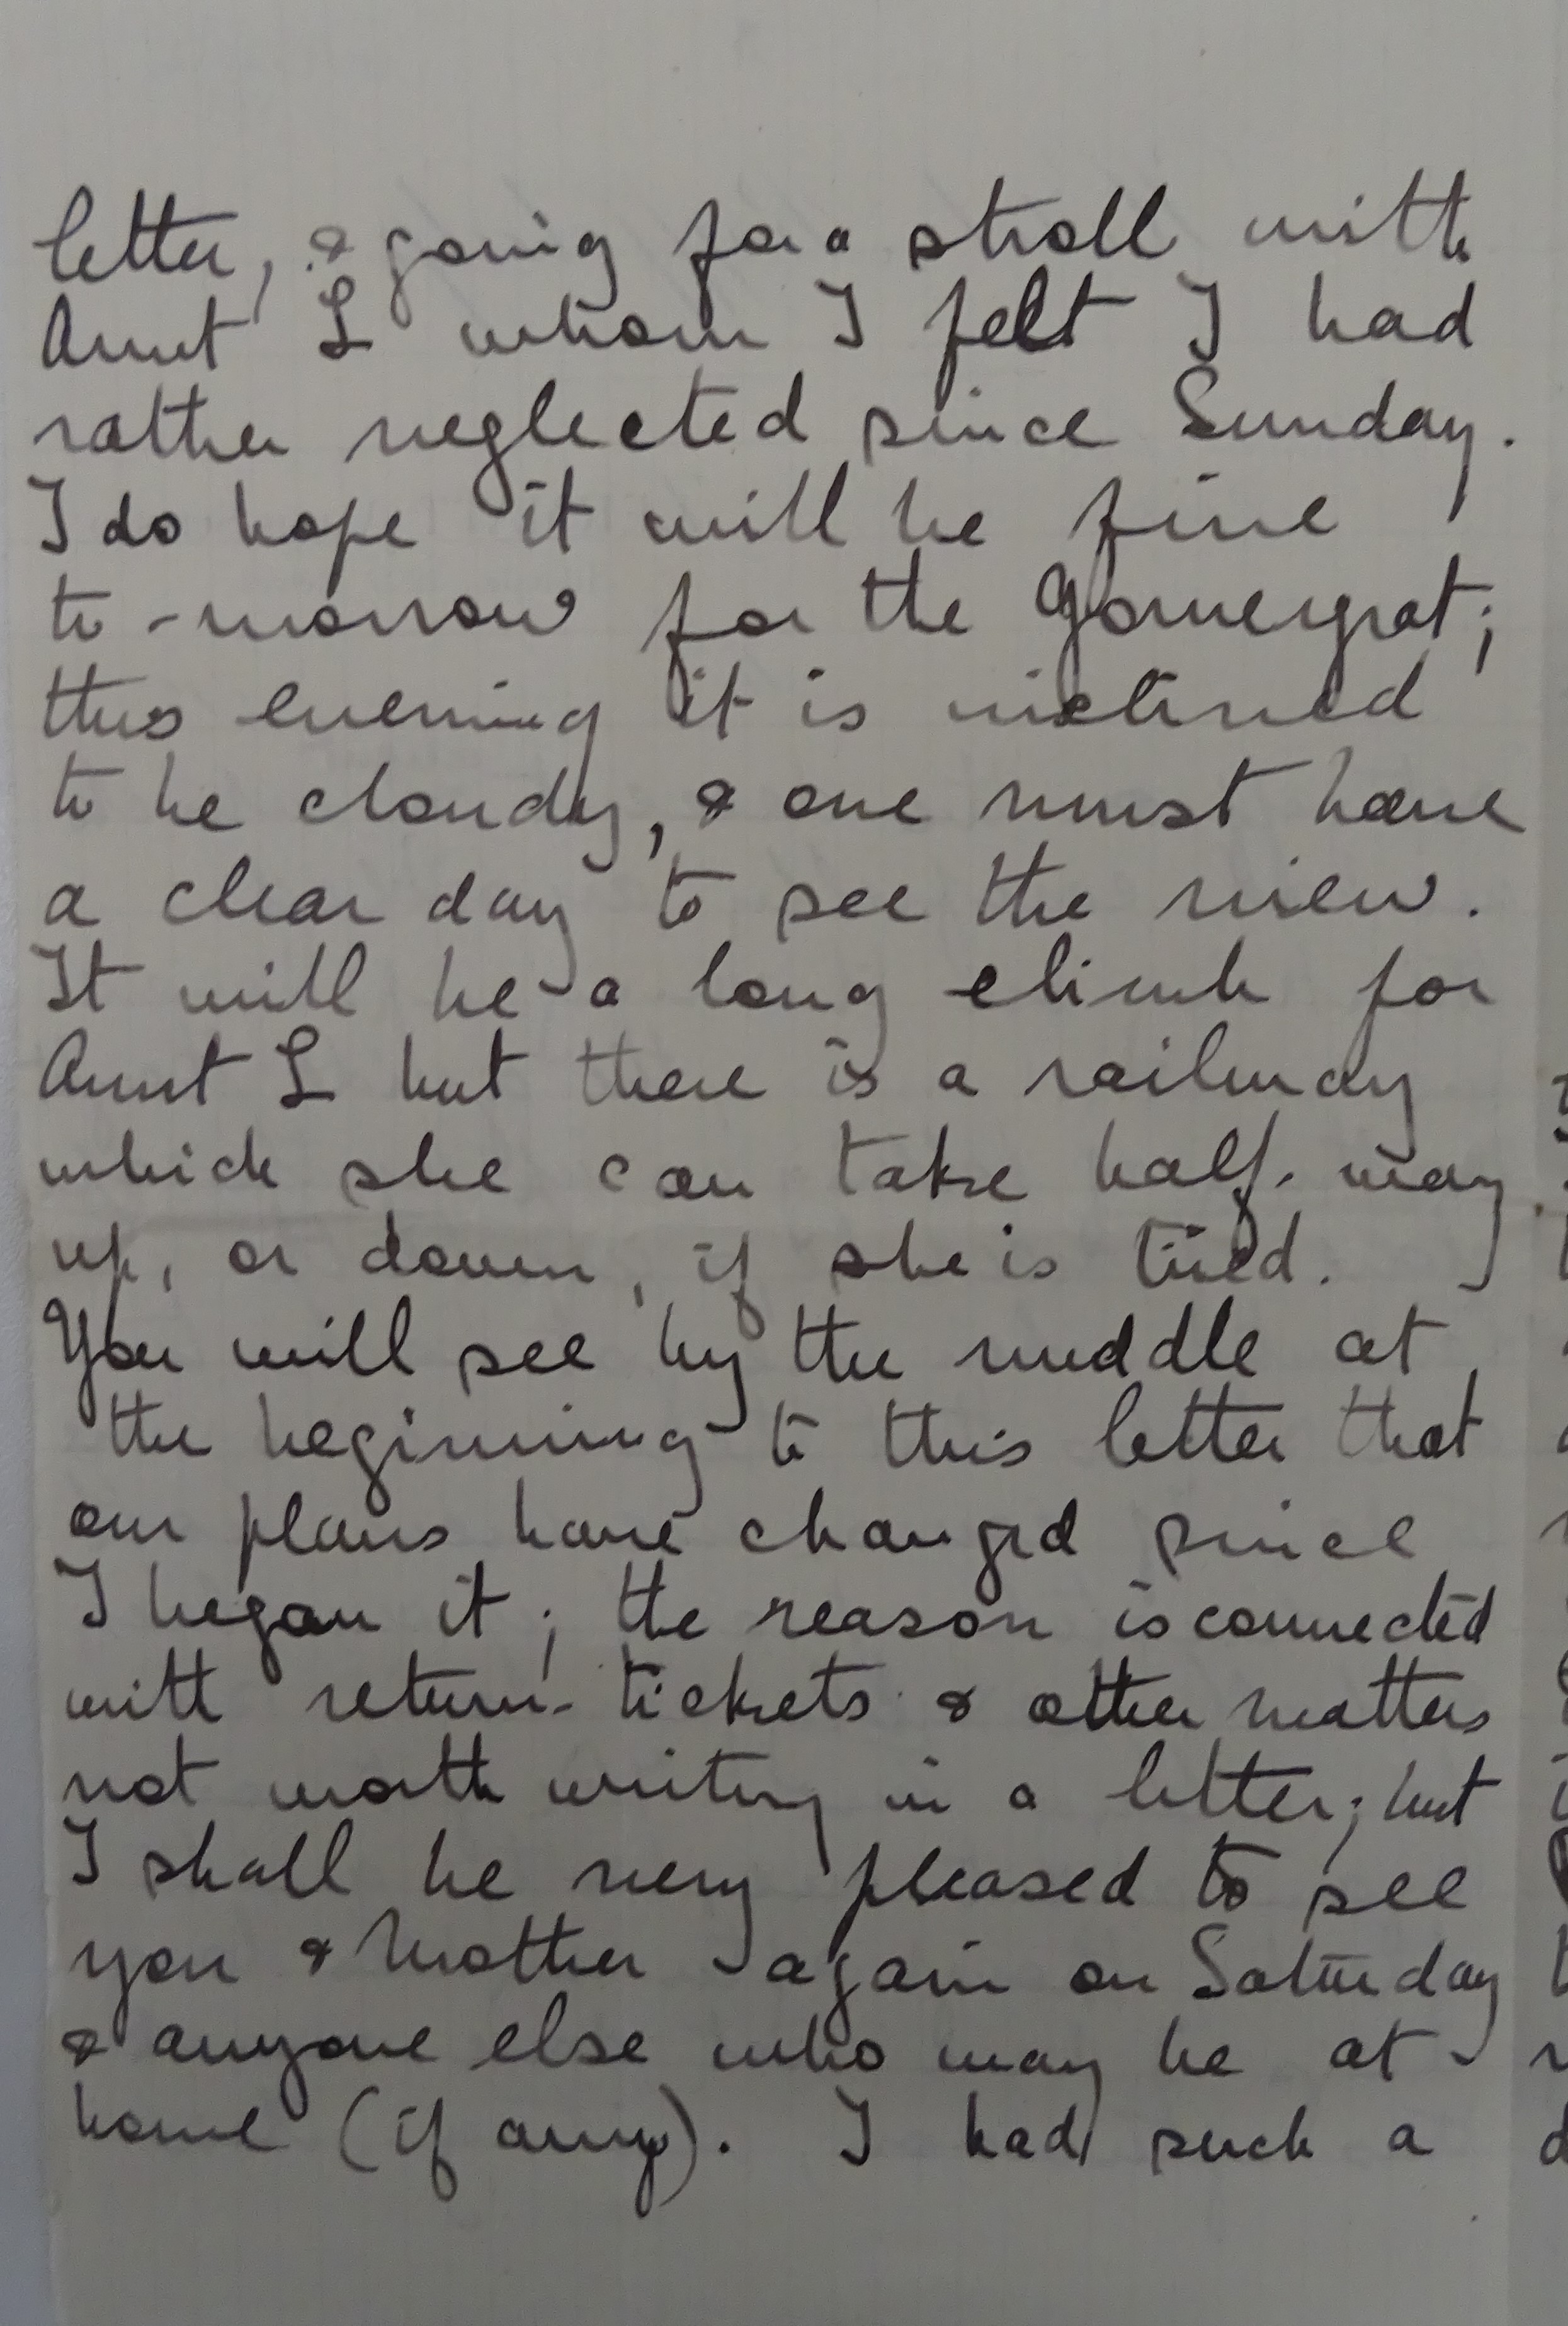 letter, & going for a stroll with
Aunt L whom I felt I had
rather neglected since Sunday.
I do hope it will be fine
to-morrow for the Gornergrat;
this evening it is inclined
to be cloudy, & one must have
a clear day to see the view.
It will be a long climb for
Aunt L but there is a railway
which she can take half-way
up, or down, if she is tired.
You will see by the muddle at
the beginning to this letter that
our plans have changed since
I began it; the reason is connected
with return-tickets & other matters
not worth writing in a letter; but
I shall be very pleased to see
you & Mother again on Saturday
& anyone else who may be at
home (if any). I had such a